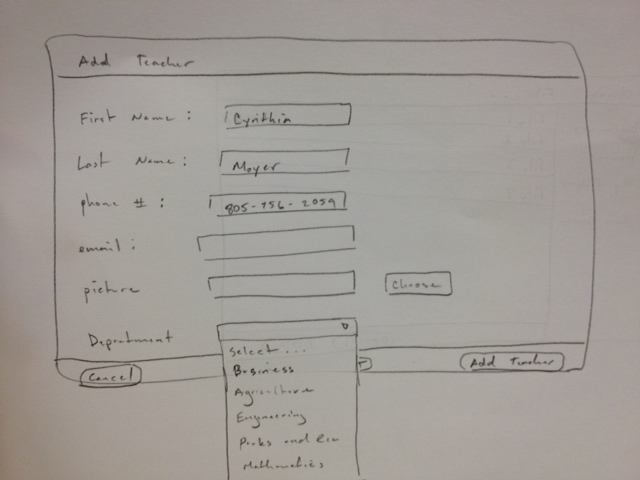 Add Teacher
First Name : Cynthia
Last Name : Moyer
phone # : 805-756-2059
email :
picture Choose
Department
Select...
Business
Agriculture
Engineering
Parks and Rec
Mathematics
Cancel Add Teacher